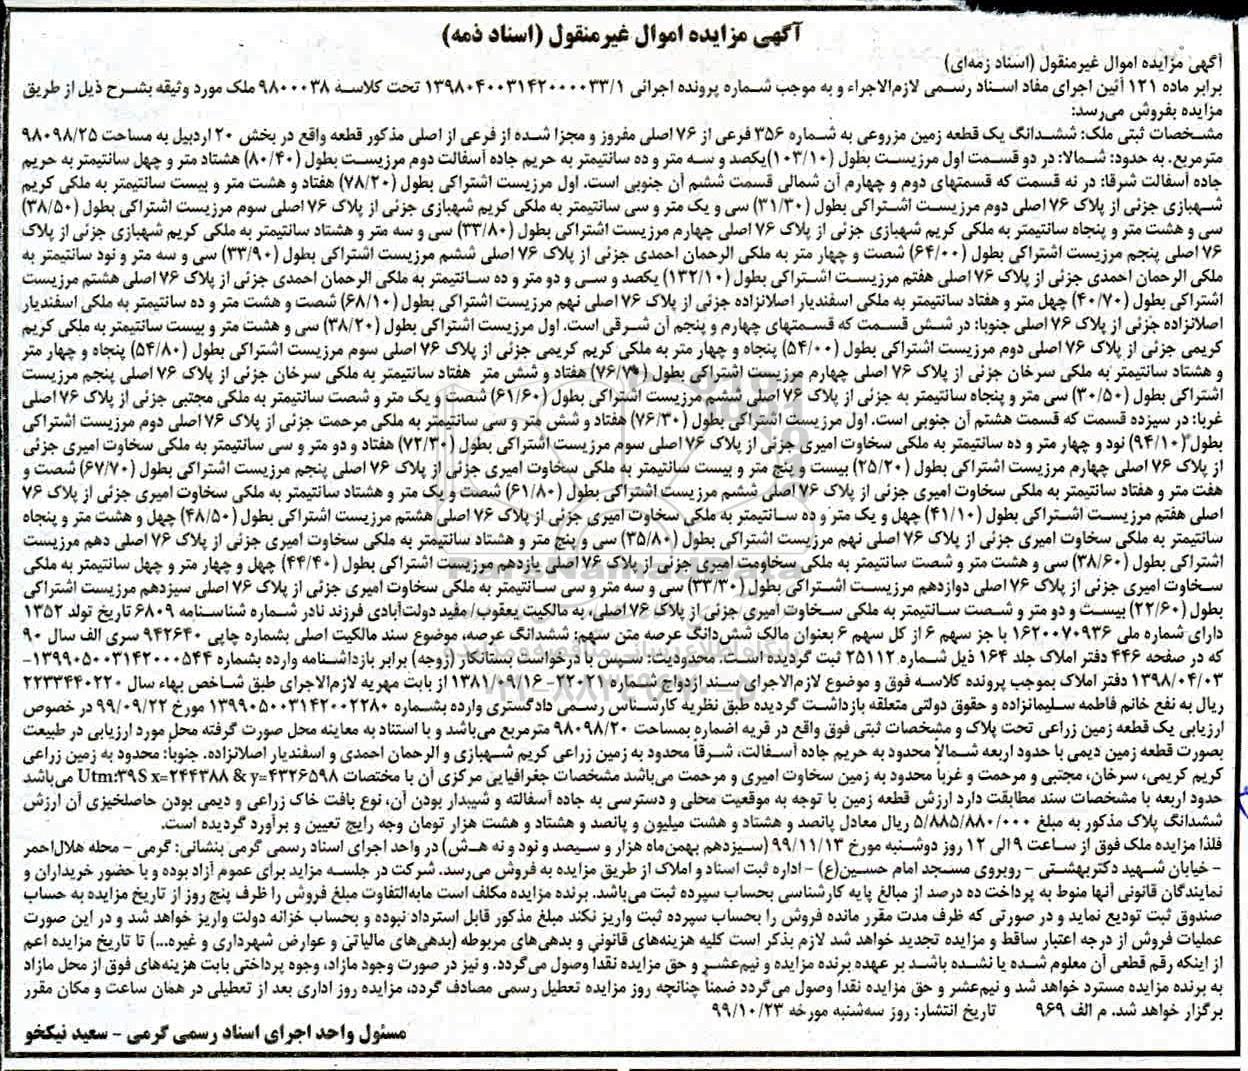 آگهی مزایده اموال غیرمنقول (اسناد ذمه)
آگهی مزایده اموال غیرمنقول (اسناد زمه‌ای)
برابر ماده ۱۲۱ آئین اجرای مفاد اسناد رسمی لازم‌الاجراء و به موجب شماره پرونده اجرائی ۱۳۹۸۰۴۰۰۳۱۴۲۰۰۰۰۳۳/۱ تحت کلاسه ۹۸۰۰۰۳۸ ملک مورد وثیقه بشرح ذیل از طریق
مزایده بفروش می‌رسد:
مشخصات ثبتی ملک: ششدانگ یک قطعه زمین مزروعی به شماره ۳۵۶ فرعی از ۷۶ اصلی مفروز و مجزا شده از فرعی از اصلی مذکور قطعه واقع در بخش ۲۰ اردبیل به مساحت ۹۸۰۹۸/۲۵
مترمربع. به حدود: شمالا: در دو قسمت اول مرزیست بطول (۱۰۳/۱۰)یکصد و سه متر و ده سانتیمتر به حریم جاده آسفالت دوم مرزیست بطول (۸۰/۴۰) هشتاد متر و چهل سانتیمتر به حریم
جاده آسفالت شرقا: در نه قسمت که قسمتهای دوم و چهارم آن شمالی قسمت ششم آن جنوبی است. اول مرزیست اشتراکی بطول (۷۸/۲۰) هفتاد و هشت متر و بیست سانتیمتر به ملکی کریم
شهبازی جزئی از پلاک ۷۶ اصلی دوم مرزیست اشتراکی بطول (۳۱/۳۰) سی و یک متر و سی سانتیمتر به ملکی کریم شهبازی جزئی از پلاک ۷۶ اصلی سوم مرزیست اشتراکی بطول (۳۸/۵۰)
سی و هشت متر و پنجاه سانتیمتر به ملکی کریم شهبازی جزئی از پلاک ۷۶ اصلی چهارم مرزیست اشتراکی بطول (۳۳/۸۰) سی و سه متر و هشتاد سانتیمتر به ملکی کریم شهبازی جزئی از پلاک
۷۶ اصلی پنجم مرزیست اشتراکی بطول (۶۴/۰۰) شصت و چهار متر به ملکی الرحمان احمدی جزئی از پلاک ۷۶ اصلی ششم مرزیست اشتراکی بطول (۳۳/۹۰) سی و سه متر و نود سانتیمتر به
ملکی الرحمان احمدی جزئی از پلاک ۷۶ اصلی هفتم مرزیست اشتراکی بطول (۱۳۲/۱۰) یکصد و سی و دو متر و ده سانتیمتر به ملکی الرحمان احمدی جزئی از پلاک ۷۶ اصلی هشتم مرزیست
اشتراکی بطول (۴۰/۷۰) چهل متر و هفتاد سانتیمتر به ملکی اسفندیار اصلانزاده جزئی از پلاک ۷۶ اصلی نهم مرزیست اشتراکی بطول (۶۸/۱۰) شصت و هشت متر و ده سانتیمتر به ملکی اسفندیار
اصلانزاده جزئی از پلاک ۷۶ اصلی جنوبا: در شش قسمت که قسمتهای چهارم و پنجم آن شرقی است. اول مرزیست اشتراکی بطول (۳۸/۲۰) سی و هشت متر و بیست سانتیمتر به ملکی کریم
کریمی جزئی از پلاک ۷۶ اصلی دوم مرزیست اشتراکی بطول (۵۴/۰۰) پنجاه و چهار متر به ملکی کریم کریمی جزئی از پلاک ۷۶ اصلی سوم مرزیست اشتراکی بطول (۵۴/۸۰) پنجاه و چهار متر
و هشتاد سانتیمتر به ملکی سرخان جزئی از پلاک ۷۶ اصلی چهارم مرزیست اشتراکی بطول (۷۶/۷۰) هفتاد و شش متر هفتاد سانتیمتر به ملکی سرخان جزئی از پلاک ۷۶ اصلی پنجم مرزیست
اشتراکی بطول (۳۰/۵۰) سی متر و پنجاه سانتیمتر به جزئی از پلاک ۷۶ اصلی ششم مرزیست اشتراکی بطول (۶۱/۶۰) شصت و یک متر و شصت سانتیمتر به ملکی مجتبی جزئی از پلاک ۷۶ اصلی
غربا: در سیزده قسمت که قسمت هشتم آن جنوبی است. اول مرزیست اشتراکی بطول (۷۶/۳۰) هفتاد و شش متر و سی سانتیمتر به ملکی مرحمت جزئی از پلاک ۷۶ اصلی دوم مرزیست اشتراکی
بطول (۹۴/۱۰) نود و چهار متر و ده سانتیمتر به ملکی سخاوت امیری جزئی از پلاک ۷۶ اصلی سوم مرزیست اشتراکی بطول (۷۲/۳۰) هفتاد و دو متر و سی سانتیمتر به ملکی سخاوت امیری جزئی
از پلاک ۷۶ اصلی چهارم مرزیست اشتراکی بطول (۲۵/۲۰) بیست و پنج متر و بیست سانتیمتر به ملکی سخاوت امیری جزئی از پلاک ۷۶ اصلی پنجم مرزیست اشتراکی بطول (۶۷/۷۰) شصت و
هفت متر و هفتاد سانتیمتر به ملکی سخاوت امیری جزئی از پلاک ۷۶ اصلی ششم مرزیست اشتراکی بطول (۶۱/۸۰) شصت و یک متر و هشتاد سانتیمتر به ملکی سخاوت امیری جزئی از پلاک ۷۶
اصلی هفتم مرزیست اشتراکی بطول (۴۱/۱۰) چهل و یک متر و ده سانتیمتر به ملکی سخاوت امیری جزئی از پلاک ۷۶ اصلی هشتم مرزیست اشتراکی بطول (۴۸/۵۰) چهل و هشت متر و پنجاه
سانتیمتر به ملکی سخاوت امیری جزئی از پلاک ۷۶ اصلی نهم مرزیست اشتراکی بطول (۳۵/۸۰) سی و پنج متر و هشتاد سانتیمتر به ملکی سخاوت امیری جزئی از پلاک ۷۶ اصلی دهم مرزیست
اشتراکی بطول (۳۸/۶۰) سی و هشت متر و شصت سانتیمتر به ملکی سخاومت امیری جزئی از پلاک ۷۶ اصلی یازدهم مرزیست اشتراکی بطول (۴۴/۴۰) چهل و چهار متر و چهل سانتیمتر به ملکی
سخاوت امیری جزئی از پلاک ۷۶ اصلی دوازدهم مرزیست اشتراکی بطول (۳۳/۳۰) سی و سه متر و سی سانتیمتر به ملکی سخاوت امیری جزئی از پلاک ۷۶ اصلی سیزدهم مرزیست اشتراکی
بطول (۲۲/۶۰) بیست و دو متر و شصت سانتیمتر به ملکی سخاوت امیری جزئی از پلاک ۷۶ اصلی، به مالکیت یعقوب/ مفید دولت‌آبادی فرزند نادر شماره شناسنامه ۶۸۰۹ تاریخ تولد ۱۳۵۲
دارای شماره ملی ۱۶۲۰۰۷۰۹۳۶ با جز سهم ۶ از کل سهم ۶ بعنوان مالک شش‌دانگ عرصه متن سهم: ششدانگ عرصه، موضوع سند مالکیت اصلی بشماره چاپی ۹۴۲۶۴۰ سری الف سال ۹۰
که در صفحه ۴۴۶ دفتر املاک جلد ۱۶۴ ذیل شماره ۲۵۱۱۲ ثبت گردیده است. محدودیت: سپس با درخواست بستانکار (زوجه) برابر بازداشنامه وارده بشماره ۱۳۹۹۰۵۰۰۳۱۴۲۰۰۰۵۴۴-
۱۳۹۸/۰۴/۰۳ دفتر املاک بموجب پرونده کلاسه فوق و موضوع لازم‌الاجرای سند ازدواج شماره ۲۲۰۲۱- ۱۳۸۱/۰۹/۱۶ از بابت مهریه لازم‌الاجرای طبق شاخص بهاء سال ۲۲۳۳۴۴۰۲۲۰
ریال به نفع خانم فاطمه سلیمانزاده و حقوق دولتی متعلقه بازداشت گردیده طبق نظریه کارشناس رسمی دادگستری وارده بشماره ۱۳۹۹۰۵۰۰۳۱۴۲۰۰۲۲۸۰ مورخ ۹۹/۰۹/۲۲ در خصوص
ارزیابی یک قطعه زمین زراعی تحت پلاک و مشخصات ثبتی فوق واقع در قریه اضمارە بمساحت ۹۸۰۹۸/۲۰ مترمربع می‌باشد و با استناد به معاینه محل صورت گرفته محل مورد ارزیابی در طبیعت
بصورت قطعه زمین دیمی با حدود اربعه شمالاً محدود به حریم جاده آسفالت، شرقاً محدود به زمین زراعی کریم شهبازی و الرحمان احمدی و اسفندیار اصلانزاده. جنوباً: محدود به زمین زراعی
کریم کریمی، سرخان، مجتبی و مرحمت و غرباً محدود به زمین سخاوت امیری و مرحمت می‌باشد مشخصات جغرافیایی مرکزی آن با مختصات Utm:۳۹S x=۲۴۴۳۸۸ & y=۴۳۲۶۵۹۸ می‌باشد
حدود اربعه با مشخصات سند مطابقت دارد ارزش قطعه زمین با توجه به موقعیت محلی و دسترسی به جاده آسفالته و شیبدار بودن آن، نوع بافت خاک زراعی و دیمی بودن حاصلخیزی آن ارزش
ششدانگ پلاک مذکور به مبلغ ۵/۸۸۵/۸۸۰/۰۰۰ ریال معادل پانصد و هشتاد و هشت میلیون و پانصد و هشتاد و هشت هزار تومان وجه رایج تعیین و برآورد گردیده است.
فلذا مزایده ملک فوق از ساعت ۹ الی ۱۲ روز دوشنبه مورخ ۹۹/۱۱/۱۳ (سیزدهم بهمن‌ماه هزار و سیصد و نود و نه هـش) در واحد اجرای اسناد رسمی گرمی بنشانی: گرمی - محله هلال‌احمر
- خیابان شهید دکتربهشتی - روبروی مسجد امام حسین(ع) - اداره ثبت اسناد و املاک از طریق مزایده به فروش می‌رسد. شرکت در جلسه مزاید برای عموم آزاد بوده و با حضور خریداران و
نمایندگان قانونی آنها منوط به پرداخت ده درصد از مبالغ پایه کارشناسی بحساب سپرده ثبت می‌باشد. برنده مزایده مکلف است مابه‌التفاوت مبلغ فروش را ظرف پنج روز از تاریخ مزایده به حساب
صندوق ثبت تودیع نماید و در صورتی که ظرف مدت مقرر مانده فروش را بحساب سپرده ثبت واریز نکند مبلغ مذکور قابل استرداد نبوده و بحساب خزانه دولت واریز خواهد شد و در این صورت
عملیات فروش از درجه اعتبار ساقط و مزایده تجدید خواهد شد لازم بذکر است کلیه هزینه‌های قانونی و بدهی‌های مربوطه (بدهی‌های مالیاتی و عوارض شهرداری و غیره...) تا تاریخ مزایده اعم
از اینکه رقم قطعی آن معلوم شده یا نشده باشد بر عهده برنده مزایده و نیم‌عشر و حق مزایده نقدا وصول می‌گردد. و نیز در صورت وجود مازاد، وجوه پرداختی بابت هزینه‌های فوق از محل مازاد
به برنده مزایده مسترد خواهد شد و نیم‌عشر و حق مزایده نقدا وصول می‌گردد ضمناً چنانچه روز مزایده تعطیل رسمی مصادف گردد، مزایده روز اداری بعد از تعطیلی در همان ساعت و مکان مقرر
برگزار خواهد شد. م الف ۹۶۹ تاریخ انتشار: روز سه‌شنبه مورخه ۹۹/۱۰/۲۳
مسئول واحد اجرای اسناد رسمی گرمی - سعید نیکخو